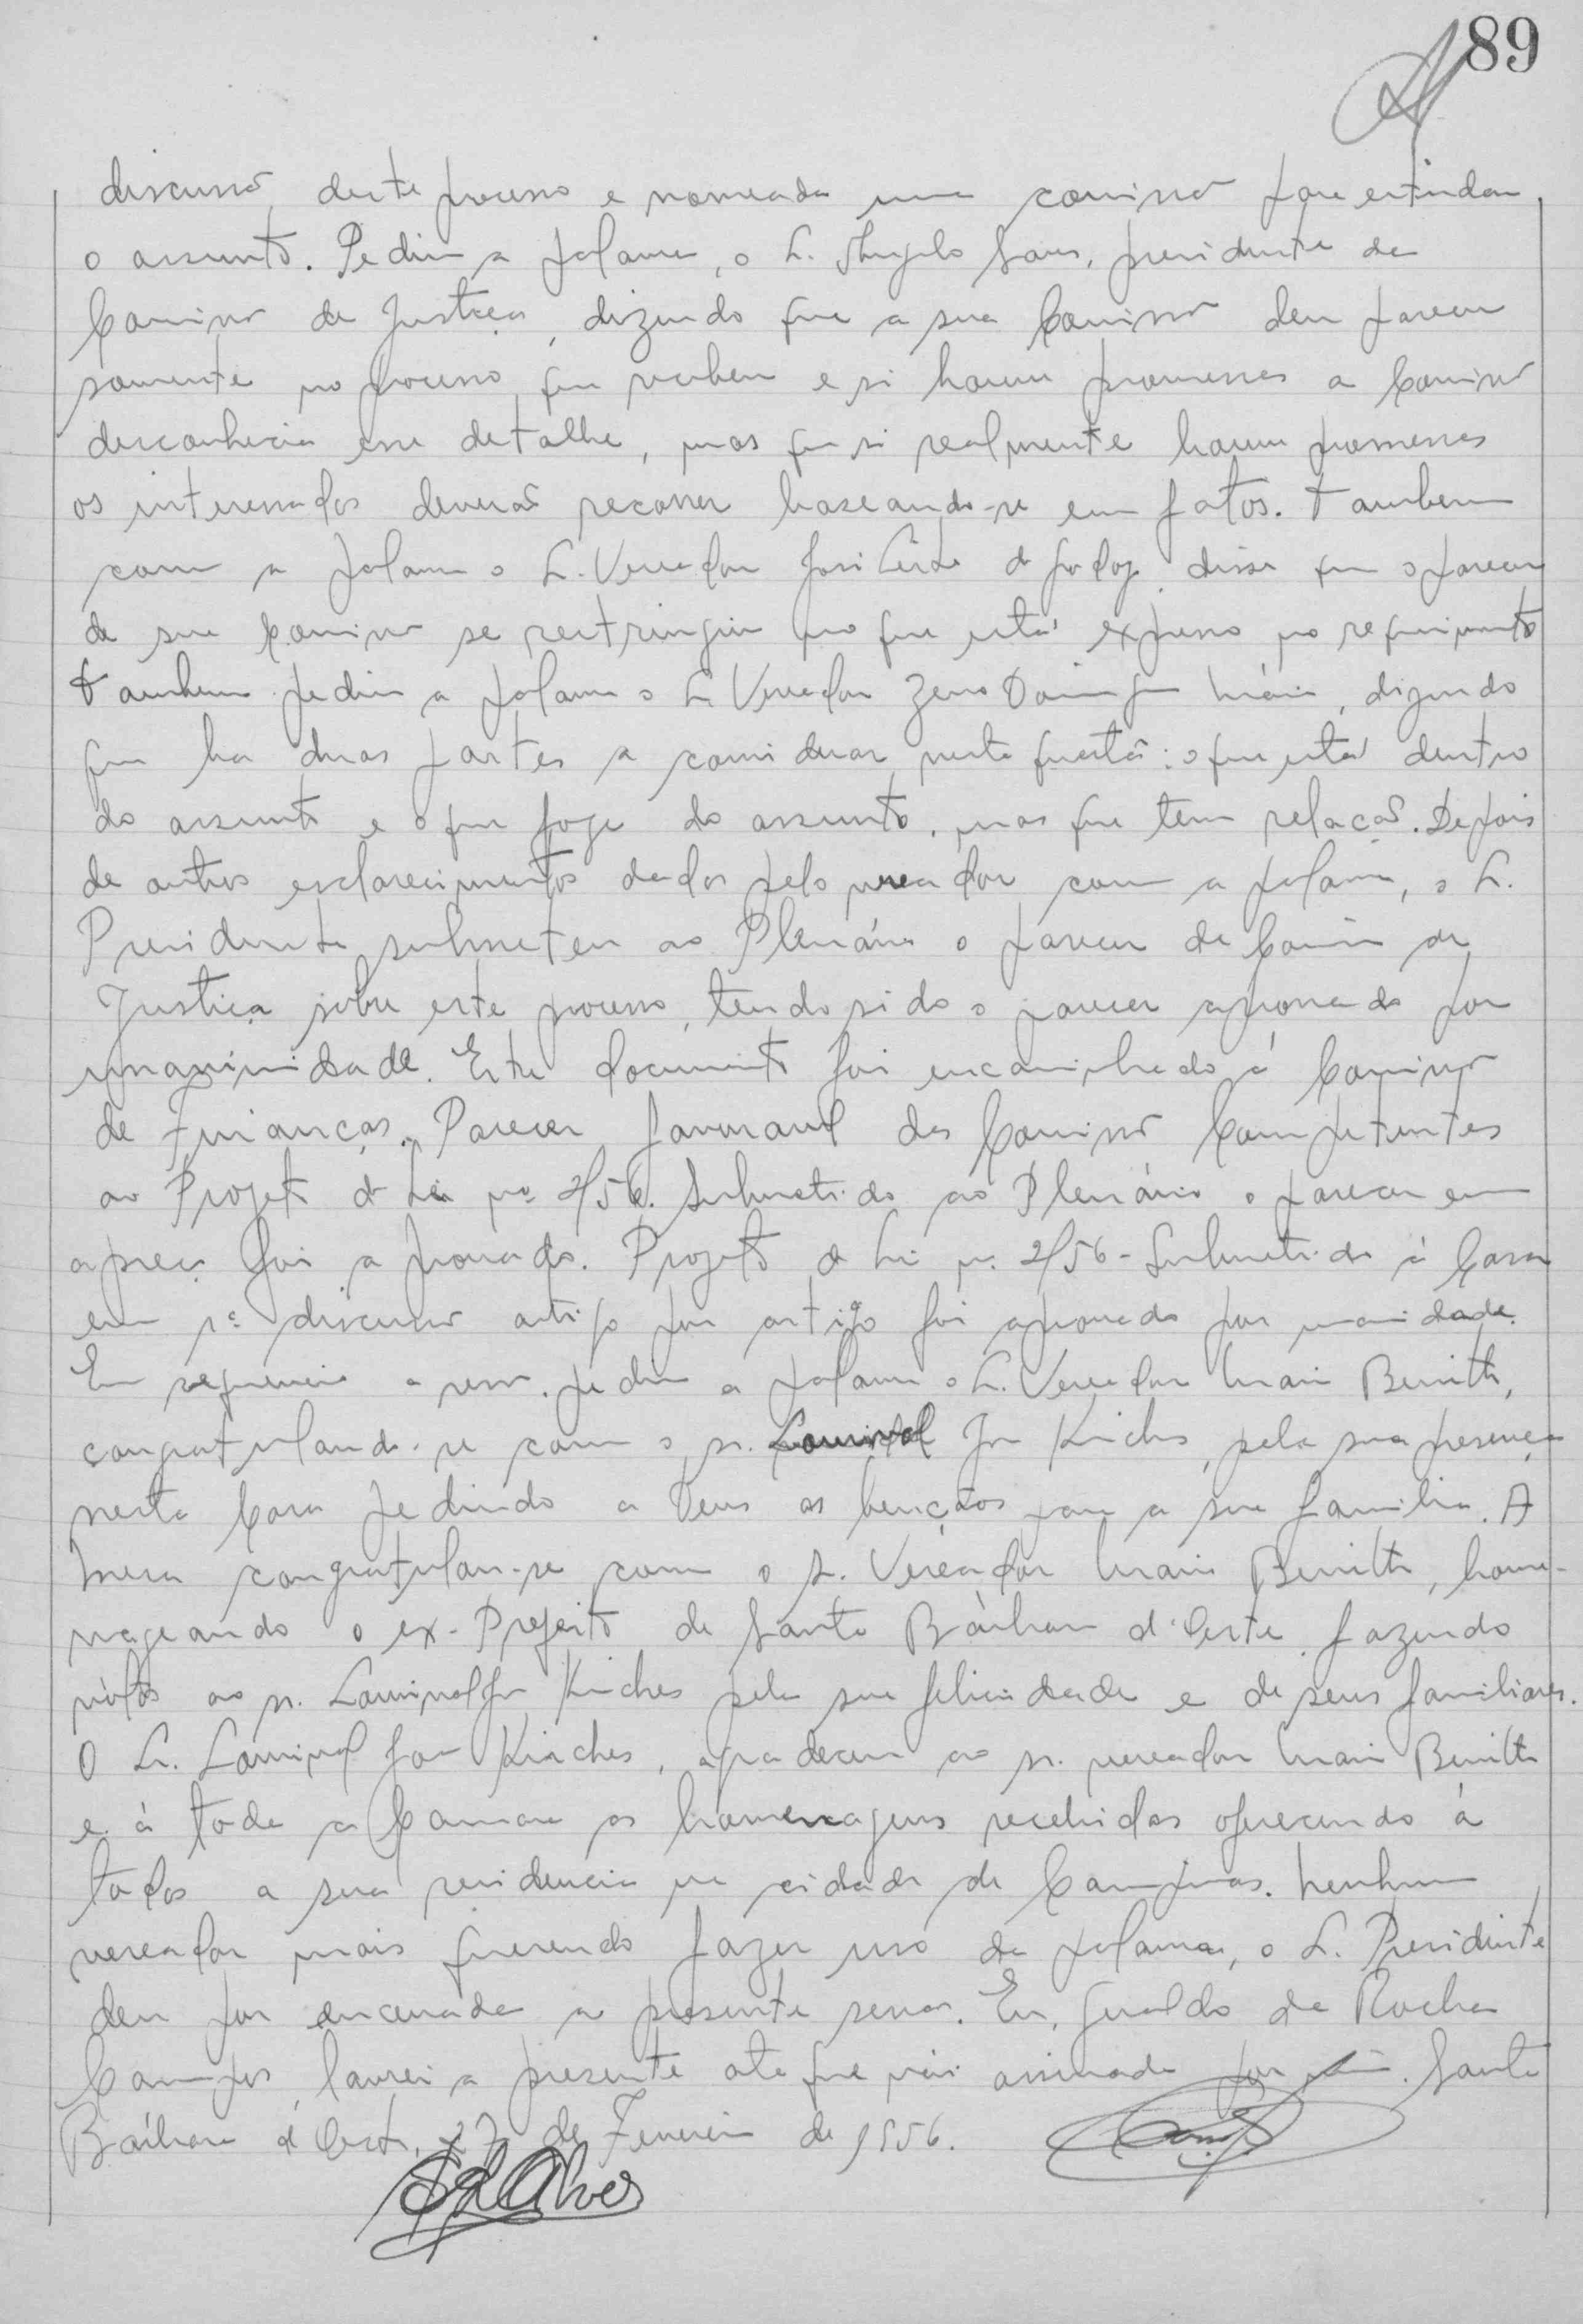 89
discussão deste processo e nomeada uma comissão para estudar
o assunto. Pediu a palavra, o S. Angelo Sans, presidente da
Comissão de Justiça, dizendo que a sua Comissão deu parecer
somente no processo que recebeu e si houve promessas a Comissão
desconhecia esse detalhe, mas que si realmente houve promessas
os interessados deverão recorrer baseando-se em fatos. Tambem
com a palavra o S. Vereador José de Godoy disse que o parecer
de sua Comissão se restringiu no que está expresso no requerimento
Tambem pediu a palavra o S. Vereador Zeno Maia, dizendo
que ha duas partes a considerar nesta questão: o que está dentro
do assunto e o que foge do assunto, mas que tem relação. Depois
de outros esclarecimentos dados pelo vereador com a palavra, o S.
Presidente submeteu ao Plenário o parecer da Comissão de
Justiça sobre este processo, tendo sido o parecer aprovado por
unanimidade. Este documento foi encaminhado á Comissão
de Finanças. Parecer favoravel das Comissão Competentes
ao Projeto de Lei nº 2/56. Submetido ao Plenário o parecer em
apreço foi aprovado. Projeto de Lei nº 2/56 - Submetido á Casa
em 1ª discussão artigo por artigo foi aprovado por unanimidade.
Em sequencia a sessão pediu a palavra o S. Vereador Benitto,
congratulando-se com o sr. Lourival Jor Kirches, pela sua presença
nesta Casa pedindo a Deus as bençãos para a sua familia. A
Mesa congratulou-se com o S. Vereador Benitto, home-
nageando o ex-Prefeito de Santa Bárbara d'Oeste, fazendo
vótos ao sr. Lourival Jor Kirches pela sua felicidade e de seus familiares.
O Sr. Lourival Jor Kirches, agradeceu ao sr. vereador Benitto
e á toda a Camara as homenagens recebidas oferecendo á
todos a sua residencia na cidade de Campinas. Nenhum
vereador mais querendo fazer uso da palavra, o S. Presidente
deu por encerrada a presente sessão. Eu, Geraldo da Rocha
Campos, lavrei a presente ata que vai assinada por mim. Santa
Bárbara d'Oeste, 27 de Fevereiro de 1956.
Alves